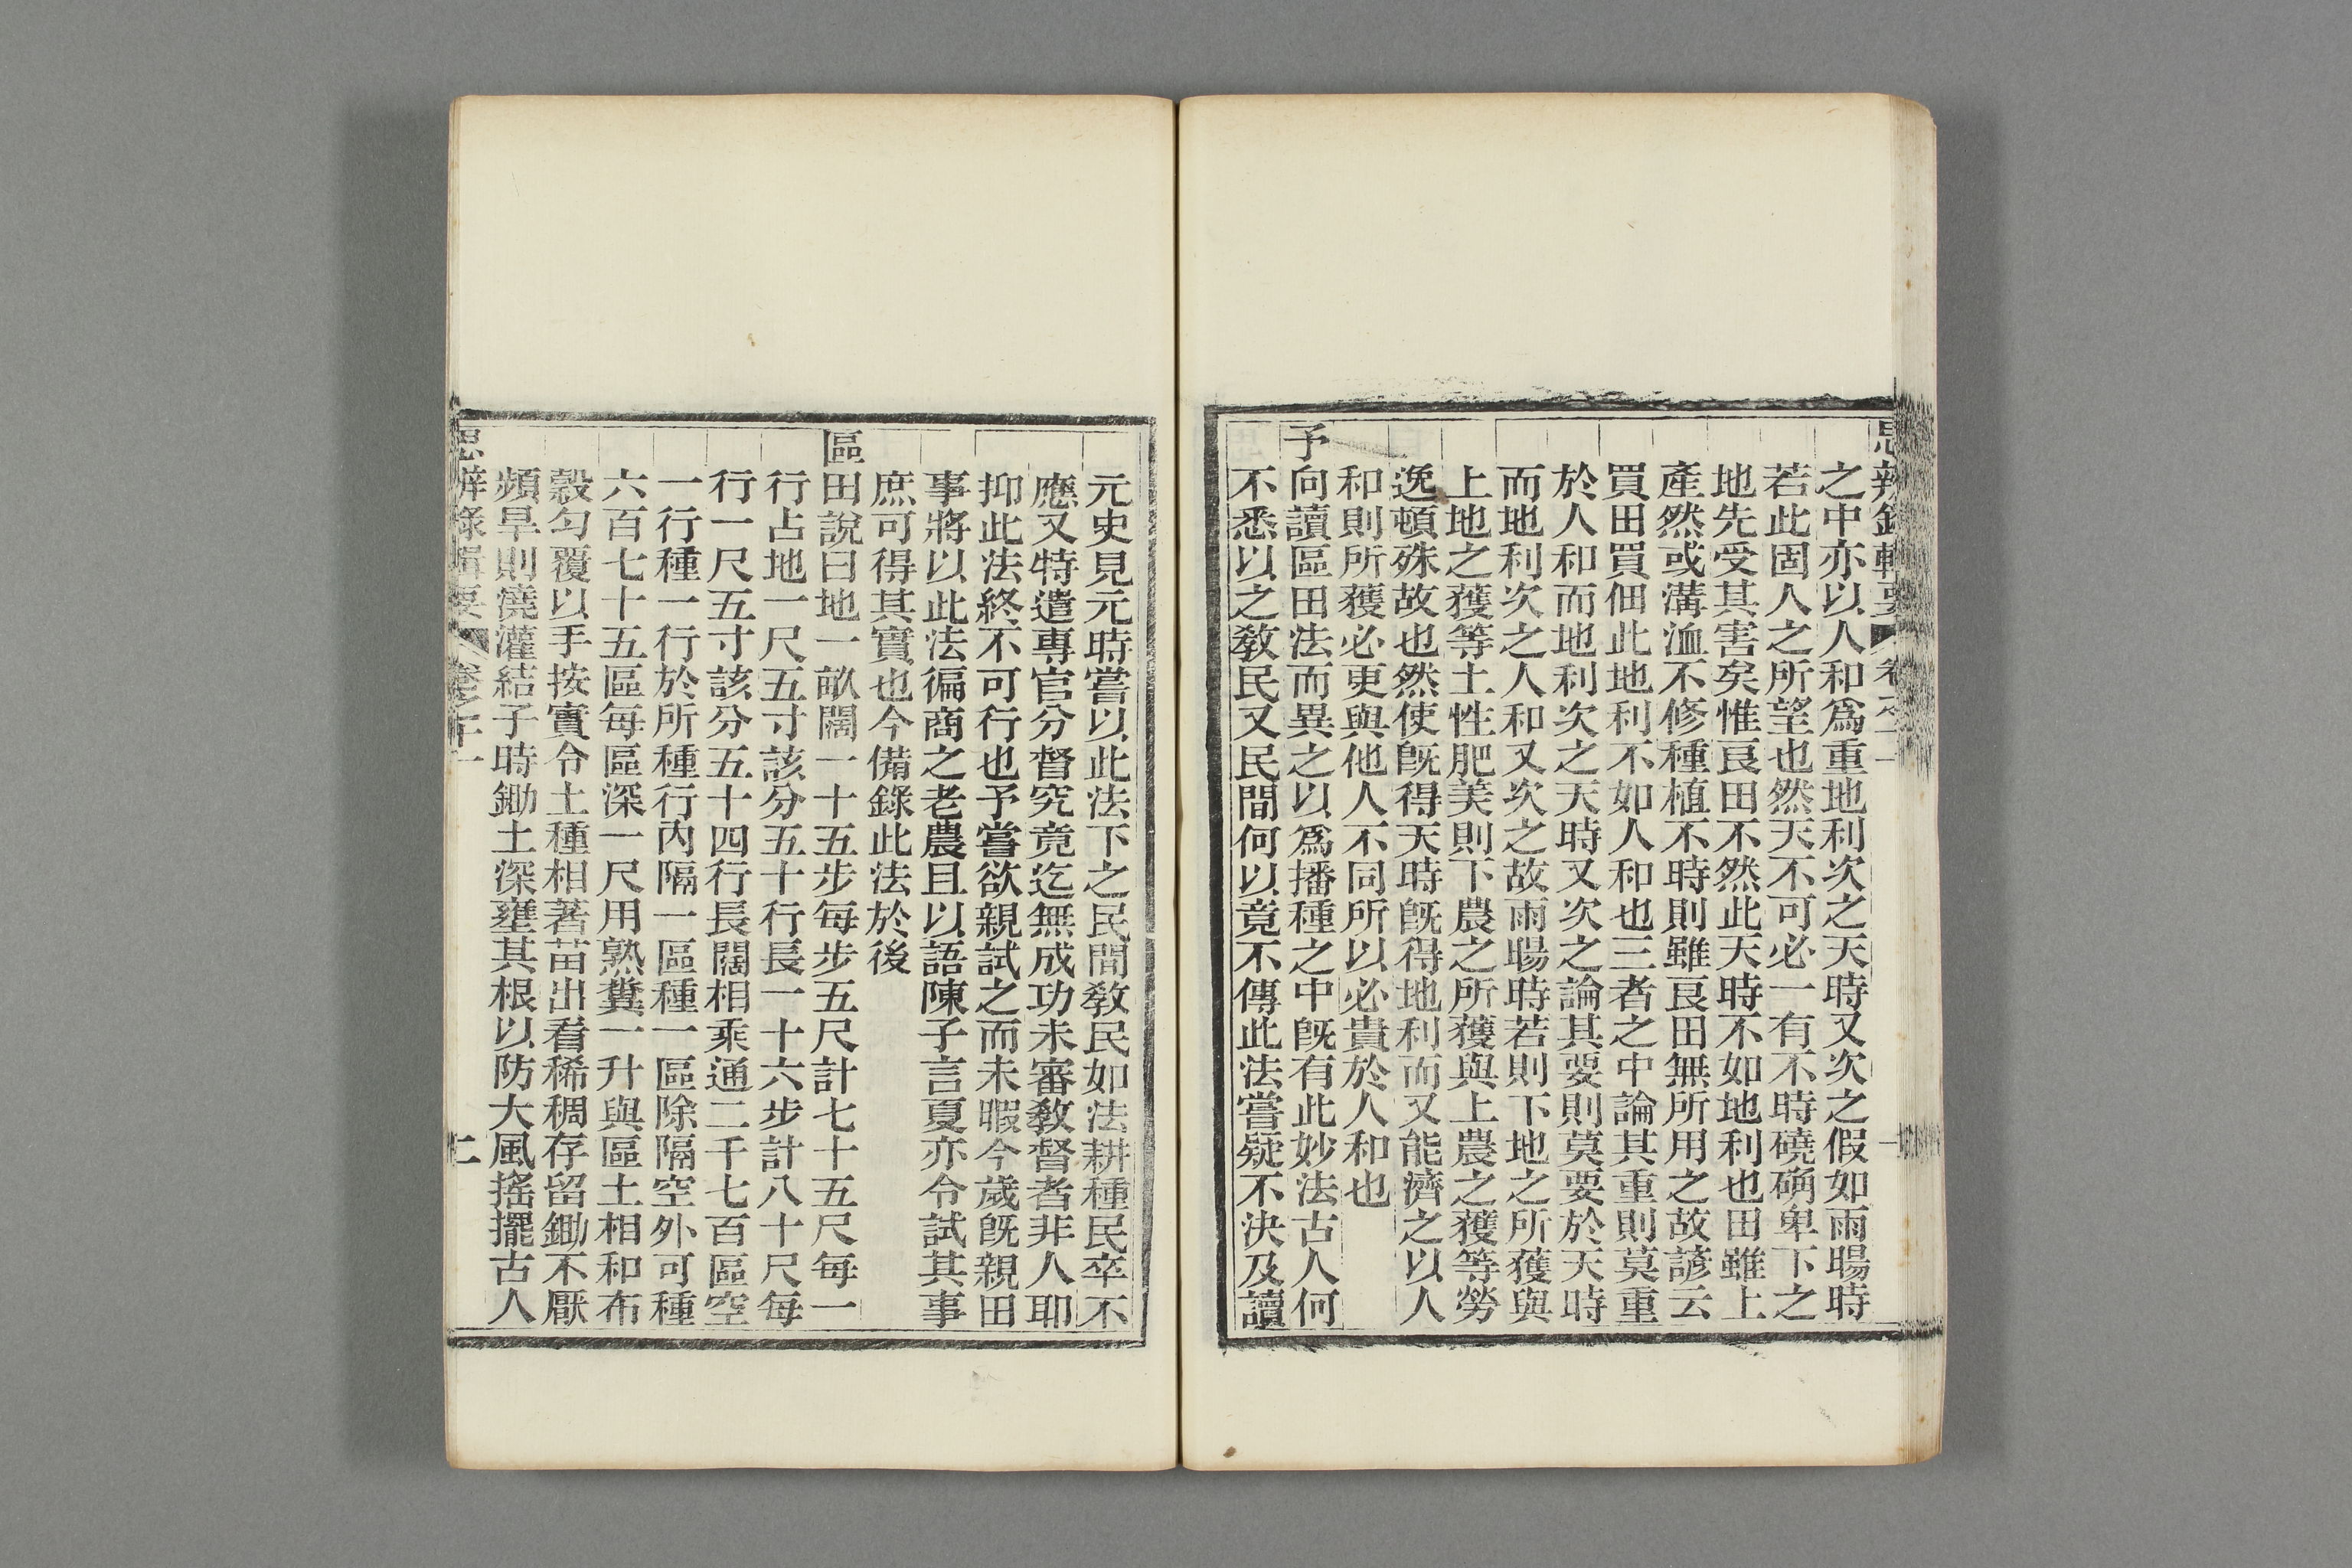 思辨錄輯要 卷之十一 一
之中亦以人和爲重地利次之天時又次之假如雨暘時
若此固人之所望也然天不可必一有不時磽确卑下之
地先受其害矣惟良田不然此天時不如地利也田雖上
產然或溝洫不修種植不時則雖良田無所用之故諺云
買田買佃此地利不如人和也三者之中論其重則莫重
於人和而地利次之天時又次之論其要則莫要於天時
而地利次之人和又次之故雨暘時若則下地之所獲與
上地之獲等土性肥美則下農之所獲與上農之獲等勞
逸頓殊故也然使旣得天時旣得地利而又能濟之以人
和則所獲必更與他人不同所以必貴於人和也
予向讀區田法而異之以爲播種之中旣有此妙法古人何
不悉以之敎民又民間何以竟不傳此法嘗疑不決及讀
元史見元時嘗以此法下之民間敎民如法耕種民卒不
應又特遣專官分督究竟迄無成功未審敎督者非人耶
抑此法終不可行也予嘗欲親試之而未暇今歲旣親田
事將以此法徧商之老農且以語陳子言夏亦令試其事
庶可得其實也今備錄此法於後
區田說曰地一畝闊一十五步每步五尺計七十五尺每一
行占地一尺五寸該分五十行長一十六步計八十尺每
行一尺五寸該分五十四行長闊相乘通二千七百區空
一行種一行於所種行內隔一區種一區除隔空外可種
六百七十五區每區深一尺用熟糞一升與區土相和布
穀勻覆以手按實令土種相著苗出看稀稠存留鋤不厭
頻旱則澆灌結子時鋤土深壅其根以防大風搖擺古人
思辨錄輯要 卷之十一 二